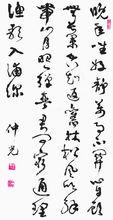 晚年惟好靜萬事不關心自顧
無長策空知返舊林松風吹解
帶山月照彈琴君問窮通理
漁歌入浦深